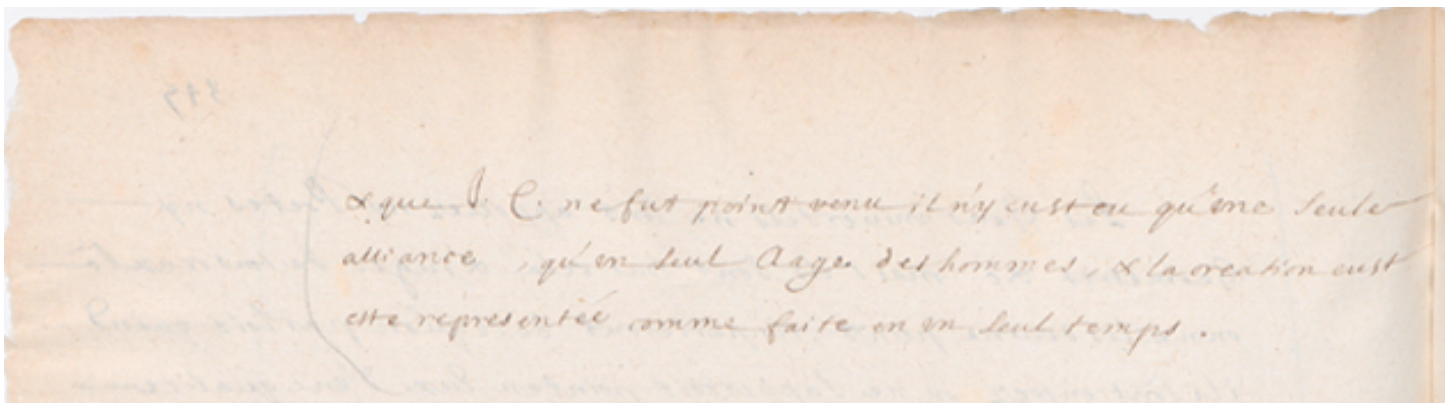 & que J. C. ne fut point venu il n'y eust eu qu'une seule
alliance, qu'un seul Aage des hommes, & la creation eust
esté representée comme faite en un seul temps.